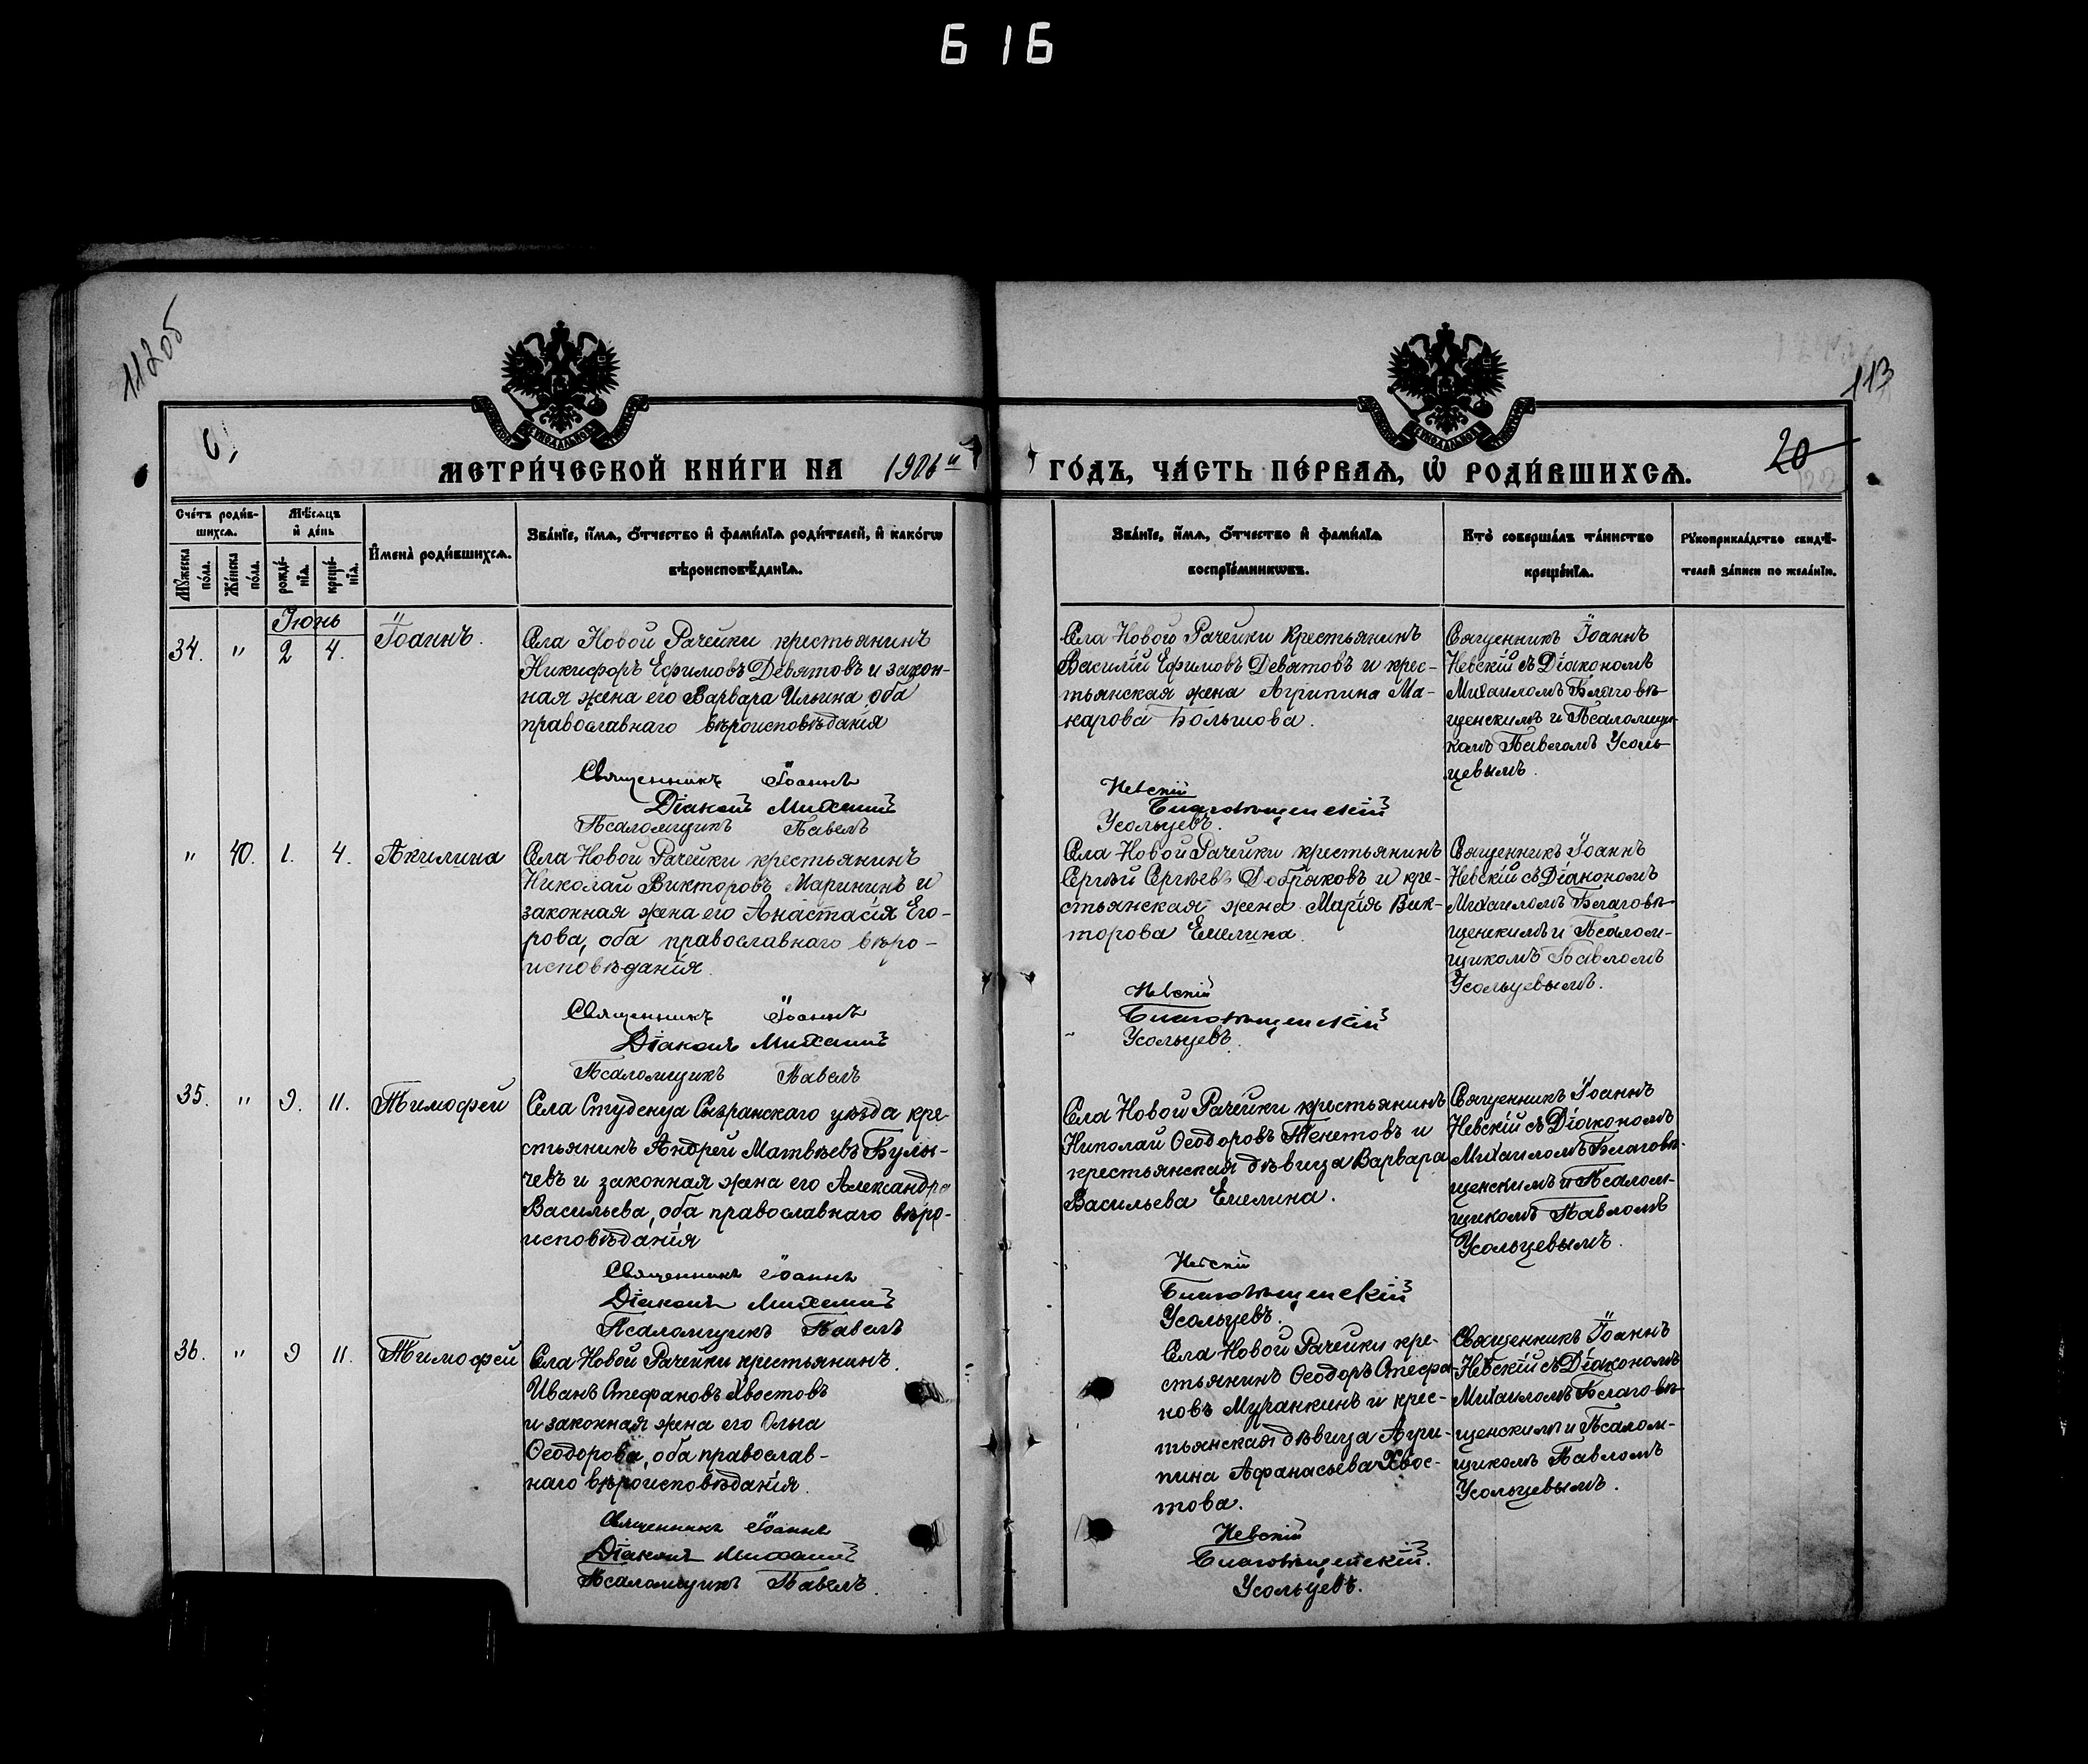 616
112об
113
20
МЕТРИ́ЧЕСКОЙ КНИ́ГИ НА 1906й
ГО́ДЪ, ЧА́СТЬ ПЕ́РВАѦ, Ѽ РОДИ́ВШИХСѦ.
Сче́тъ роди́в-
шихсѧ.
Мѣ́сѧцъ
и҆ де́нь
Мꙋ́жеска
по́ла.
Же́нска
по́ла.
рожде́-
нїѧ.
креще́-
нїѧ.
И҆мена̀ роди́вшихсѧ.
Зва́нїе, и҆́мѧ, ѻ҆́тчество и҆ фами́лїѧ роди́телей, и҆ како́гѡ
вѣроисповѣ́данїѧ.
Зва́нїе, и҆́мѧ, ѻ҆́тчество и҆ фами́лїѧ
воспрїе́мникѡвъ.
Кто̀ соверша́лъ та́инство
креще́нїѧ.
Рꙋкоприкла́дство свидѣ́-
телей за́писи по жела́нїю.
Іюнь
34. " 2 4. Іоаннъ.
Села Новой Рачейки крестьянинъ
Никифоръ Ефимовъ Девятовъ и закон-
ная жена его Варвара Ильина, оба
православнаго вѣроисповѣданія
Священникъ Іоаннъ
Діаконъ Михаилъ
Псаломщикъ Павелъ
Села Новой Рачейки крестьянинъ
Василій Ефимовъ Девятовъ и крес-
тьянская жена Агрипина Ма-
карова Большова.
Невскій
Благовѣщенскій
Усольцевъ.
Священникъ Іоаннъ
Невскій съ Діакономъ
Михаиломъ Благовѣ-
щенскимъ и Псаломщи-
комъ Павломъ Усоль-
цевымъ.
" 40. 1. 4. Акилина
Села Новой Рачейки крестьянинъ
Николай Викторовъ Марининъ и
законная жена его Анастасія Его-
рова, оба православнаго вѣро-
исповѣданія.
Священникъ Іоаннъ
Діаконъ Михаилъ
Псаломщикъ Павелъ
Села Новой Рачейки крестьянинъ
Сергѣй Сергѣевъ Добряковъ и кре-
стьянская жена Марія Вик-
торова Емелина.
Невскій
Благовѣщенскій
Усольцевъ.
Священникъ Іоаннъ
Невскій съ Діакономъ
Михаиломъ Благовѣ-
щенскимъ и Псалом-
щикомъ Павломъ
Усольцевымъ.
35. " 9. 11. Тимофей
Села Студенца Сызранскаго уѣзда кре-
стьянинъ Андрей Матвѣевъ Булы-
чевъ и законная жена его Александра
Васильева, оба православнаго вѣро-
исповѣданія
Священникъ Іоаннъ
Діаконъ Михаилъ
Псаломщикъ Павелъ
Села Новой Рачейки крестьянинъ
Николай Ѳеодоровъ Тенетовъ и
крестьянская дѣвица Варвара
Васильева Емелина.
Невскій
Благовѣщенскій
Усольцевъ.
Священникъ Іоаннъ
Невскій съ Діакономъ
Михаиломъ Благовѣ-
щенскимъ и Псалом-
щикомъ Павломъ
Усольцевымъ.
36. " 9 11. Тимофей
Села Новой Рачейки крестьянинъ
Иванъ Стефановъ Хвостовъ
и законная жена его Ольга
Ѳеодорова, оба православ-
наго вѣроисповѣданія.
Священникъ Іоаннъ
Діаконъ Михаилъ
Псаломщикъ Павелъ.
Села Новой Рачейки кре-
стьянинъ Ѳеодоръ Стефа-
новъ Муранкинъ и крес-
тьянская дѣвица Агри-
пина Афанасьева Хвос-
това.
Невскій
Благовѣщенскій.
Усольцевъ.
Священникъ Іоаннъ
Невскій съ Діакономъ
Михаиломъ Благовѣ-
щенскимъ и Псалом-
щикомъ Павломъ
Усольцевымъ.